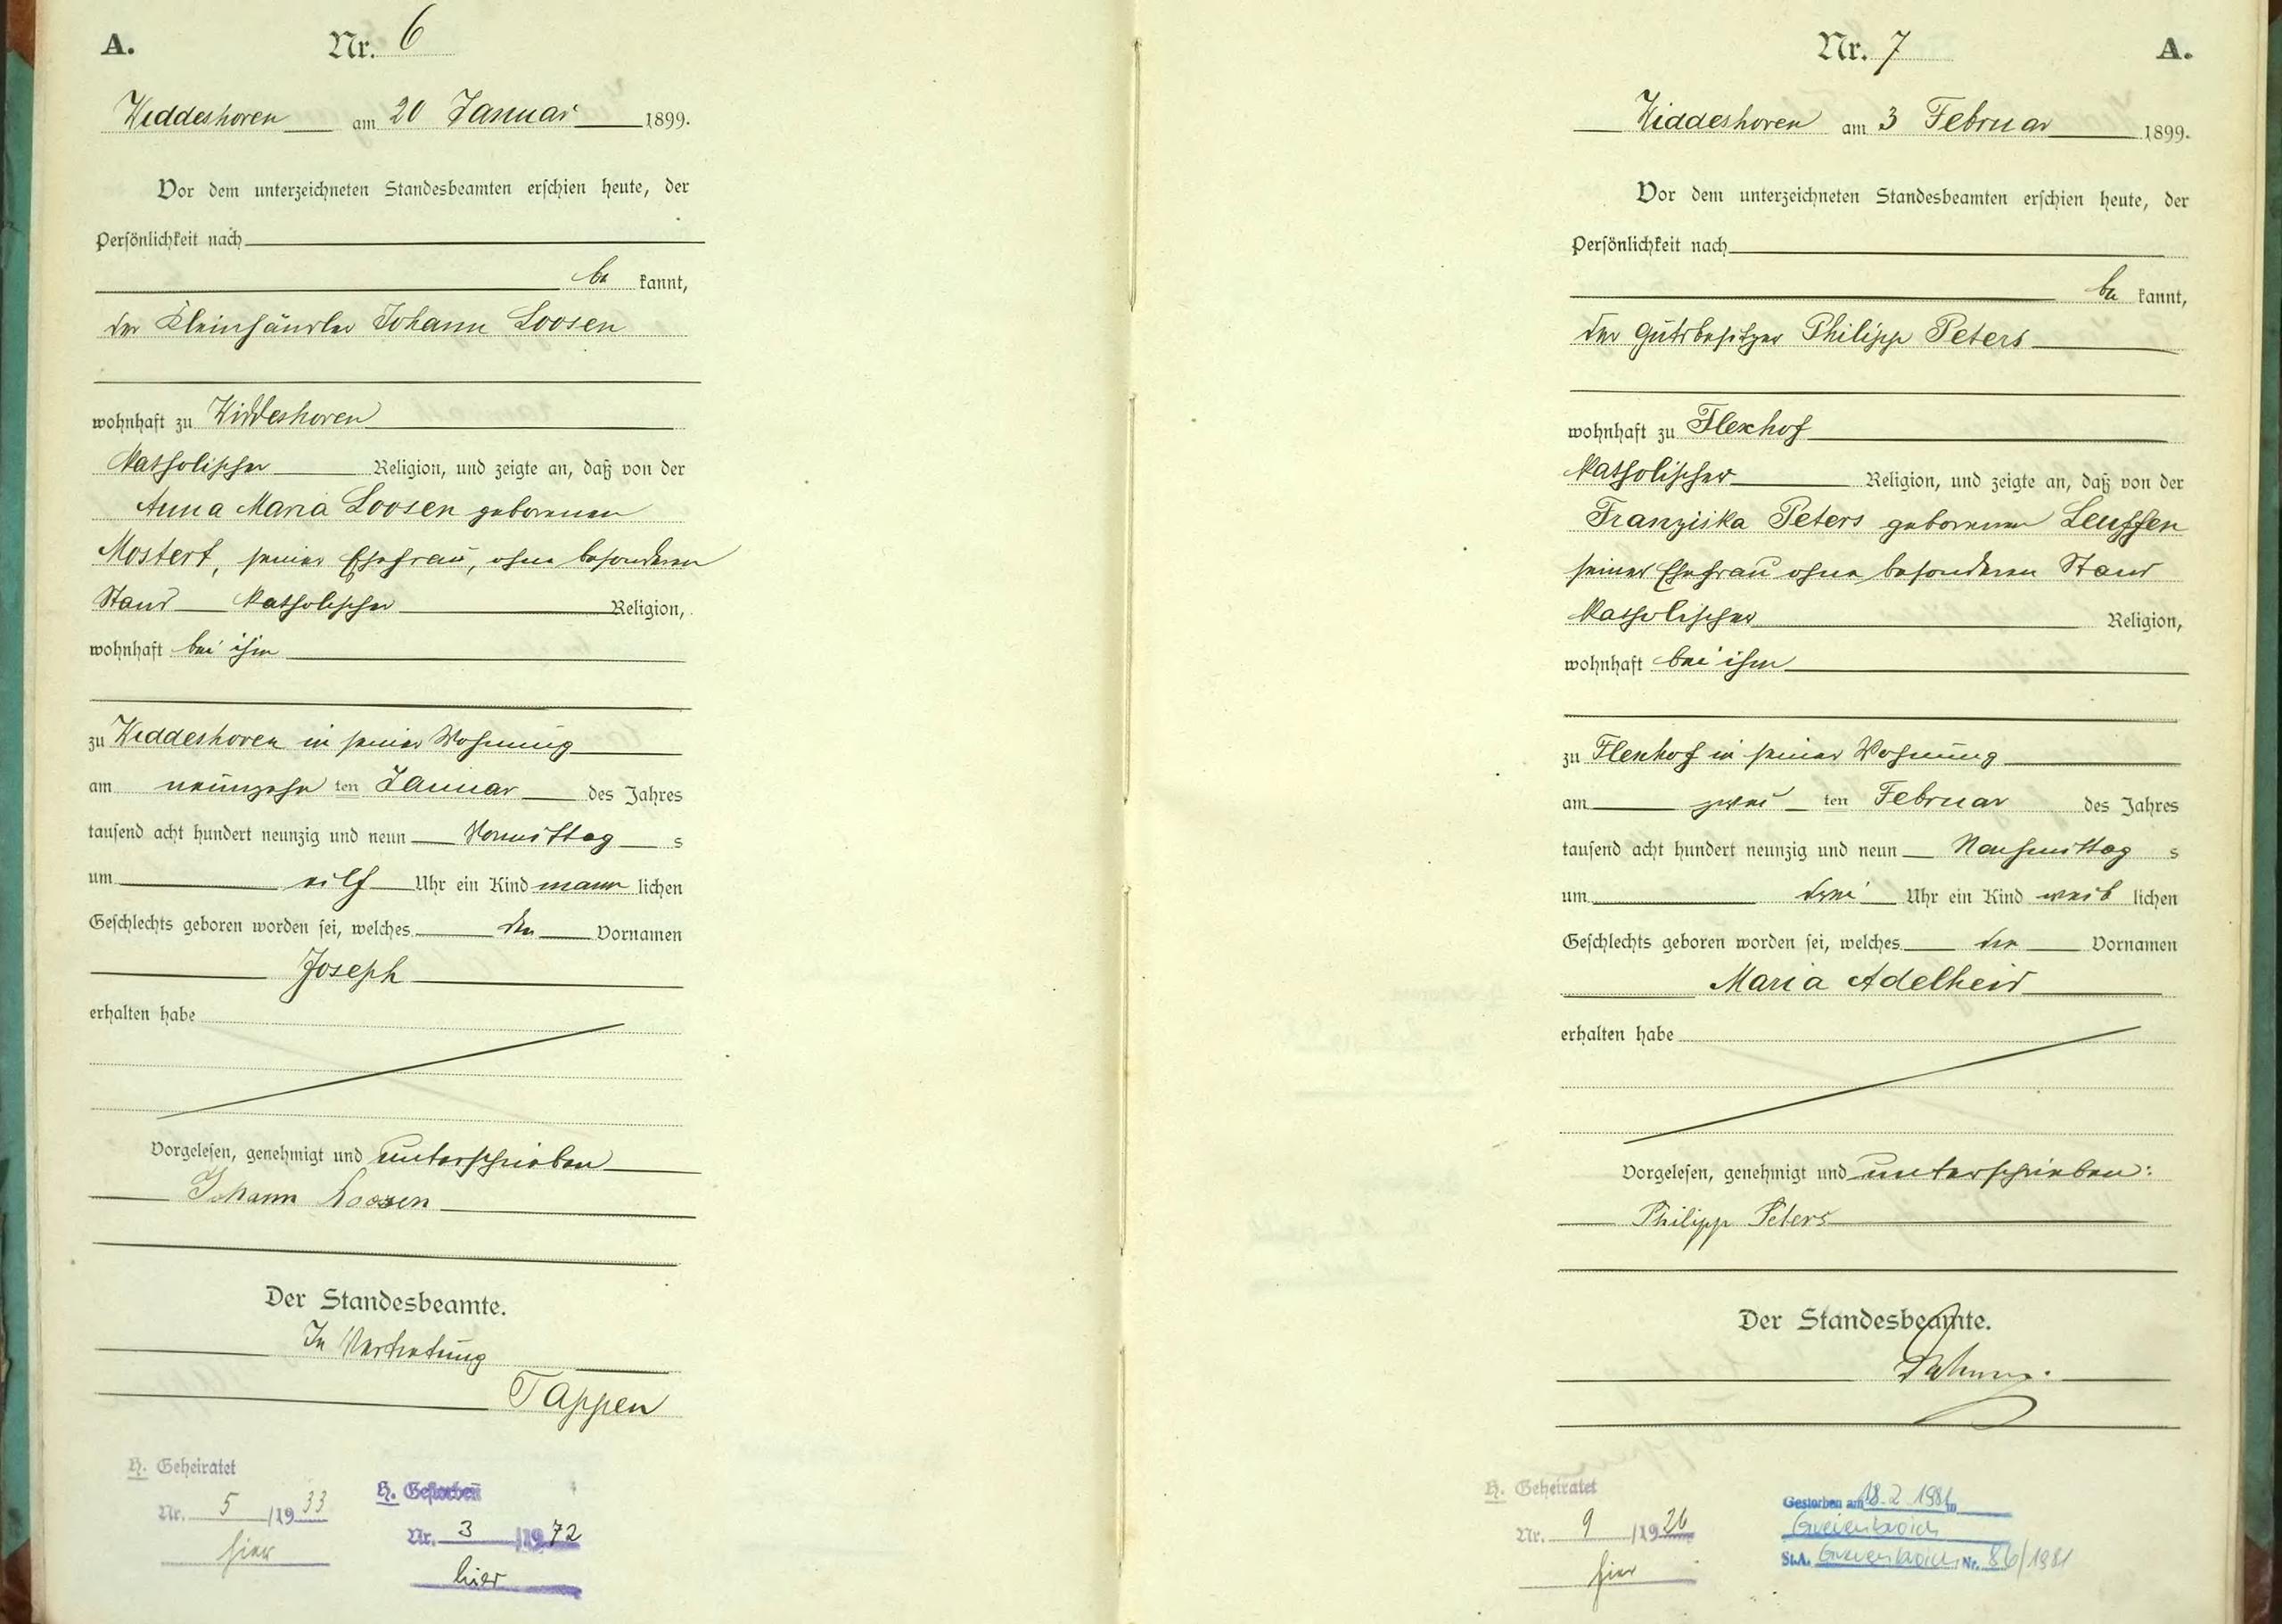 A. Nr. 6
Widdeshoven am 20 Januar 1899.
Vor dem unterzeichneten Standesbeamten erschien heute, der
Persönlichkeit nach
be kannt,
der Kleinhändler Johann Loosen
wohnhaft zu Widdeshoven
katholischer Religion, und zeigte an, daß von der
Anna Maria Loosen geborenen
Mostert, seiner Ehefrau, ohne besonderen
Stand katholischer Religion,
wohnhaft bei ihm
zu Widdeshoven in seiner Wohnung
am neunzehn ten Januar des Jahres
tausend acht hundert neunzig und neun Vormittag s
um eilf Uhr ein Kind männ lichen
Geschlechts geboren worden sei, welches den Vornamen
Joseph
erhalten habe
Vorgelesen, genehmigt und unterschrieben
Johann Loosen
Der Standesbeamte.
In Vertretung
Tappen
H. Geheiratet
Nr. 5 /1933
hier
H. Gestorben
Nr. 3 /1972
hier
Nr. 7 A.
Widdeshoven am 3 Februar 1899.
Vor dem unterzeichneten Standesbeamten erschien heute, der
Persönlichkeit nach
be kannt,
der Gutsbesitzer Philipp Peters
wohnhaft zu Flexhof
katholischer Religion, und zeigte an, daß von der
Franziska Peters geborenen Leuffen
seiner Ehefrau ohne besonderen Stand
katholischer Religion,
wohnhaft bei ihm
zu Flexhof in seiner Wohnung
am zwei ten Februar des Jahres
tausend acht hundert neunzig und neun Nachmittag s
um drei Uhr ein Kind weib lichen
Geschlechts geboren worden sei, welches die Vornamen
Maria Adelheid
erhalten habe
Vorgelesen, genehmigt und unterschrieben:
Philipp Peters
Der Standesbeamte.
H. Geheiratet
Nr. 9 /1926
hier
Gestorben am 18.2 1981 in
Grevenbroich
St.A. Grevenbroich Nr. 86/1981